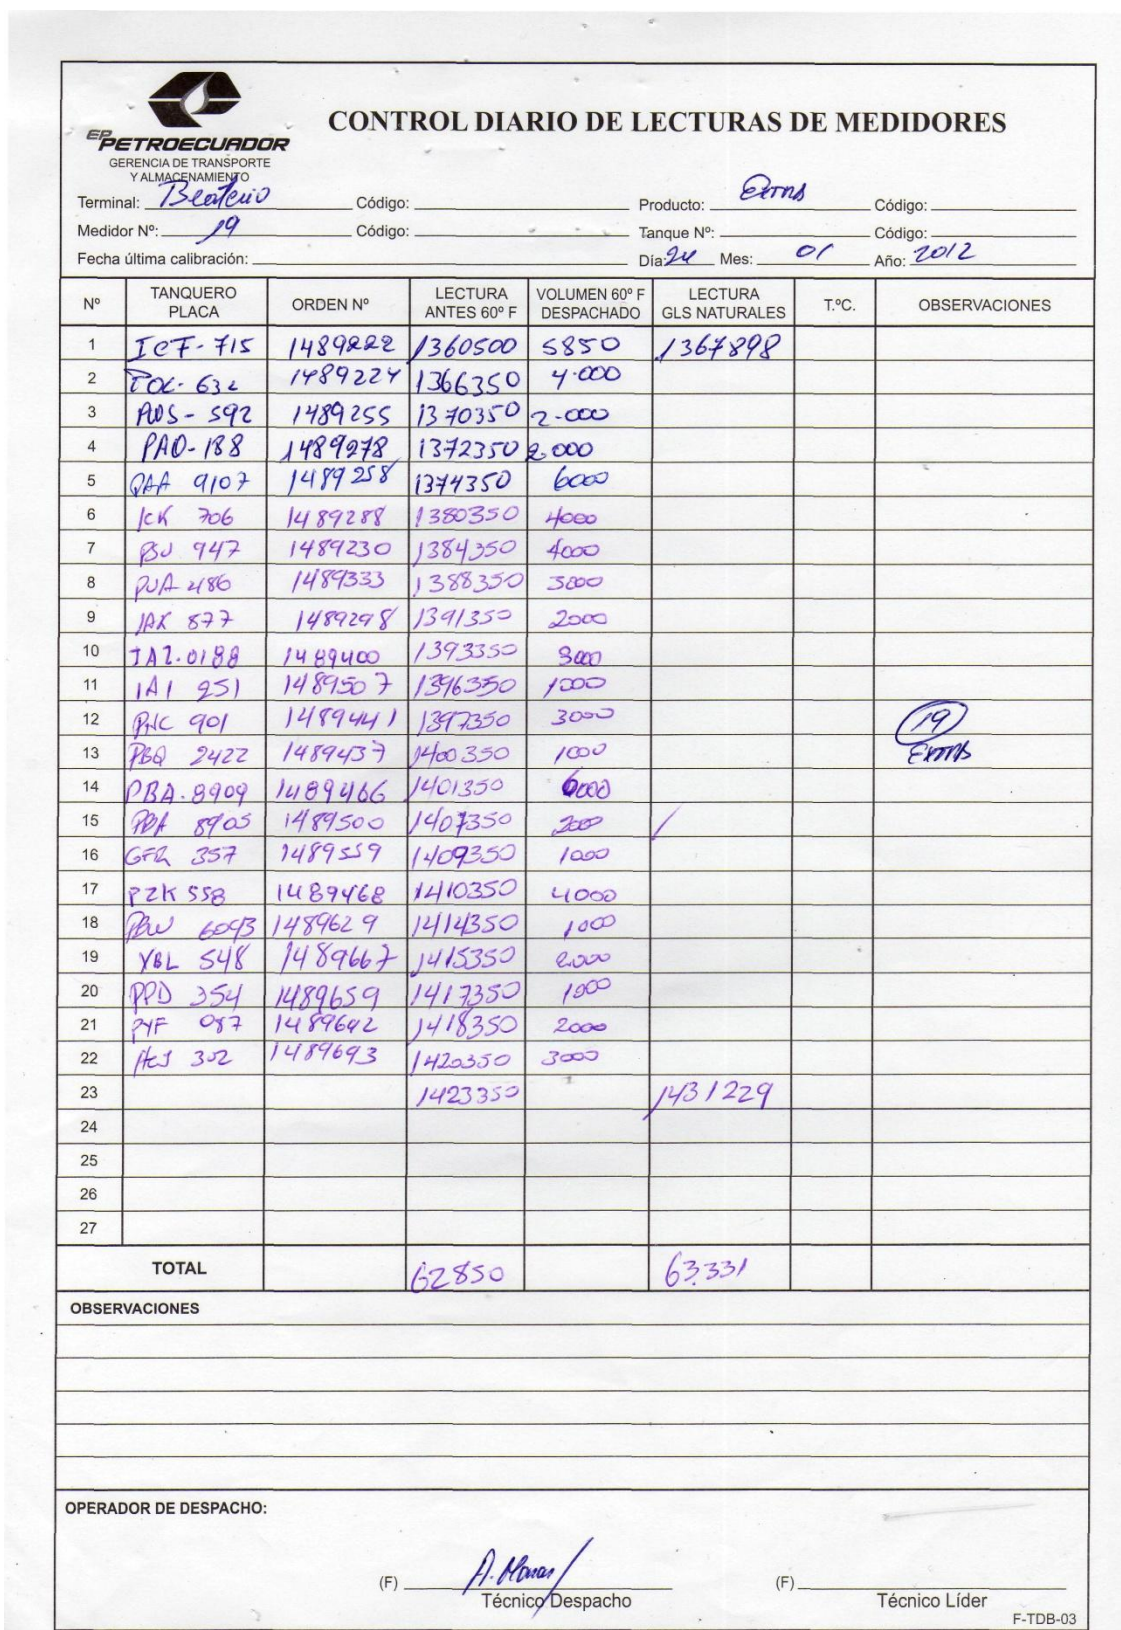 EP PETROECUADOR
GERENCIA DE TRANSPORTE
Y ALMACENAMIENTO
CONTROL DIARIO DE LECTURAS DE MEDIDORES
Terminal: Beaterio Código: Producto: Extra Código:
Medidor Nº: 19 Código: Tanque Nº: Código:
Fecha última calibración: Día: 24 Mes: 01 Año: 2012
Nº TANQUERO PLACA ORDEN Nº LECTURA ANTES 60º F VOLUMEN 60º F DESPACHADO LECTURA GLS NATURALES T.ºC. OBSERVACIONES
1 ICF-715 1489222 1360500 5850 1367898
2 632 1489224 1366350 4.000
3 592 1489255 1370350 2.000
4 PAO-188 1489278 1372350 2.000
5 9107 1489258 1374350 6000
6 706 1489288 1380350 4000
7 947 1489230 1384350 4000
8 PUA 486 1489333 1388350 3000
9 877 1489298 1391350 2000
10 0188 1489400 1393350 3000
11 IAI 951 1489507 1396350 1000
12 901 1489441 1397350 3000 19
13 PBQ 2422 1489437 1400350 1000 Extra
14 PBA-8909 1489466 1401350 6000
15 PBA 8905 1489500 1407350 2000
16 GFR 357 1489559 1409350 1000
17 PZK 558 1489468 1410350 4000
18 PBW 6093 1489629 1414350 1000
19 YBL 548 1489667 1415350 2000
20 PPD 354 1489659 1417350 1000
21 PYF 087 1489642 1418350 2000
22 302 1489693 1420350 3000
23 1423350 1431229
24
25
26
27
TOTAL 62850 63.331
OBSERVACIONES
OPERADOR DE DESPACHO:
(F) (F)
Técnico Despacho Técnico Líder
F-TDB-03